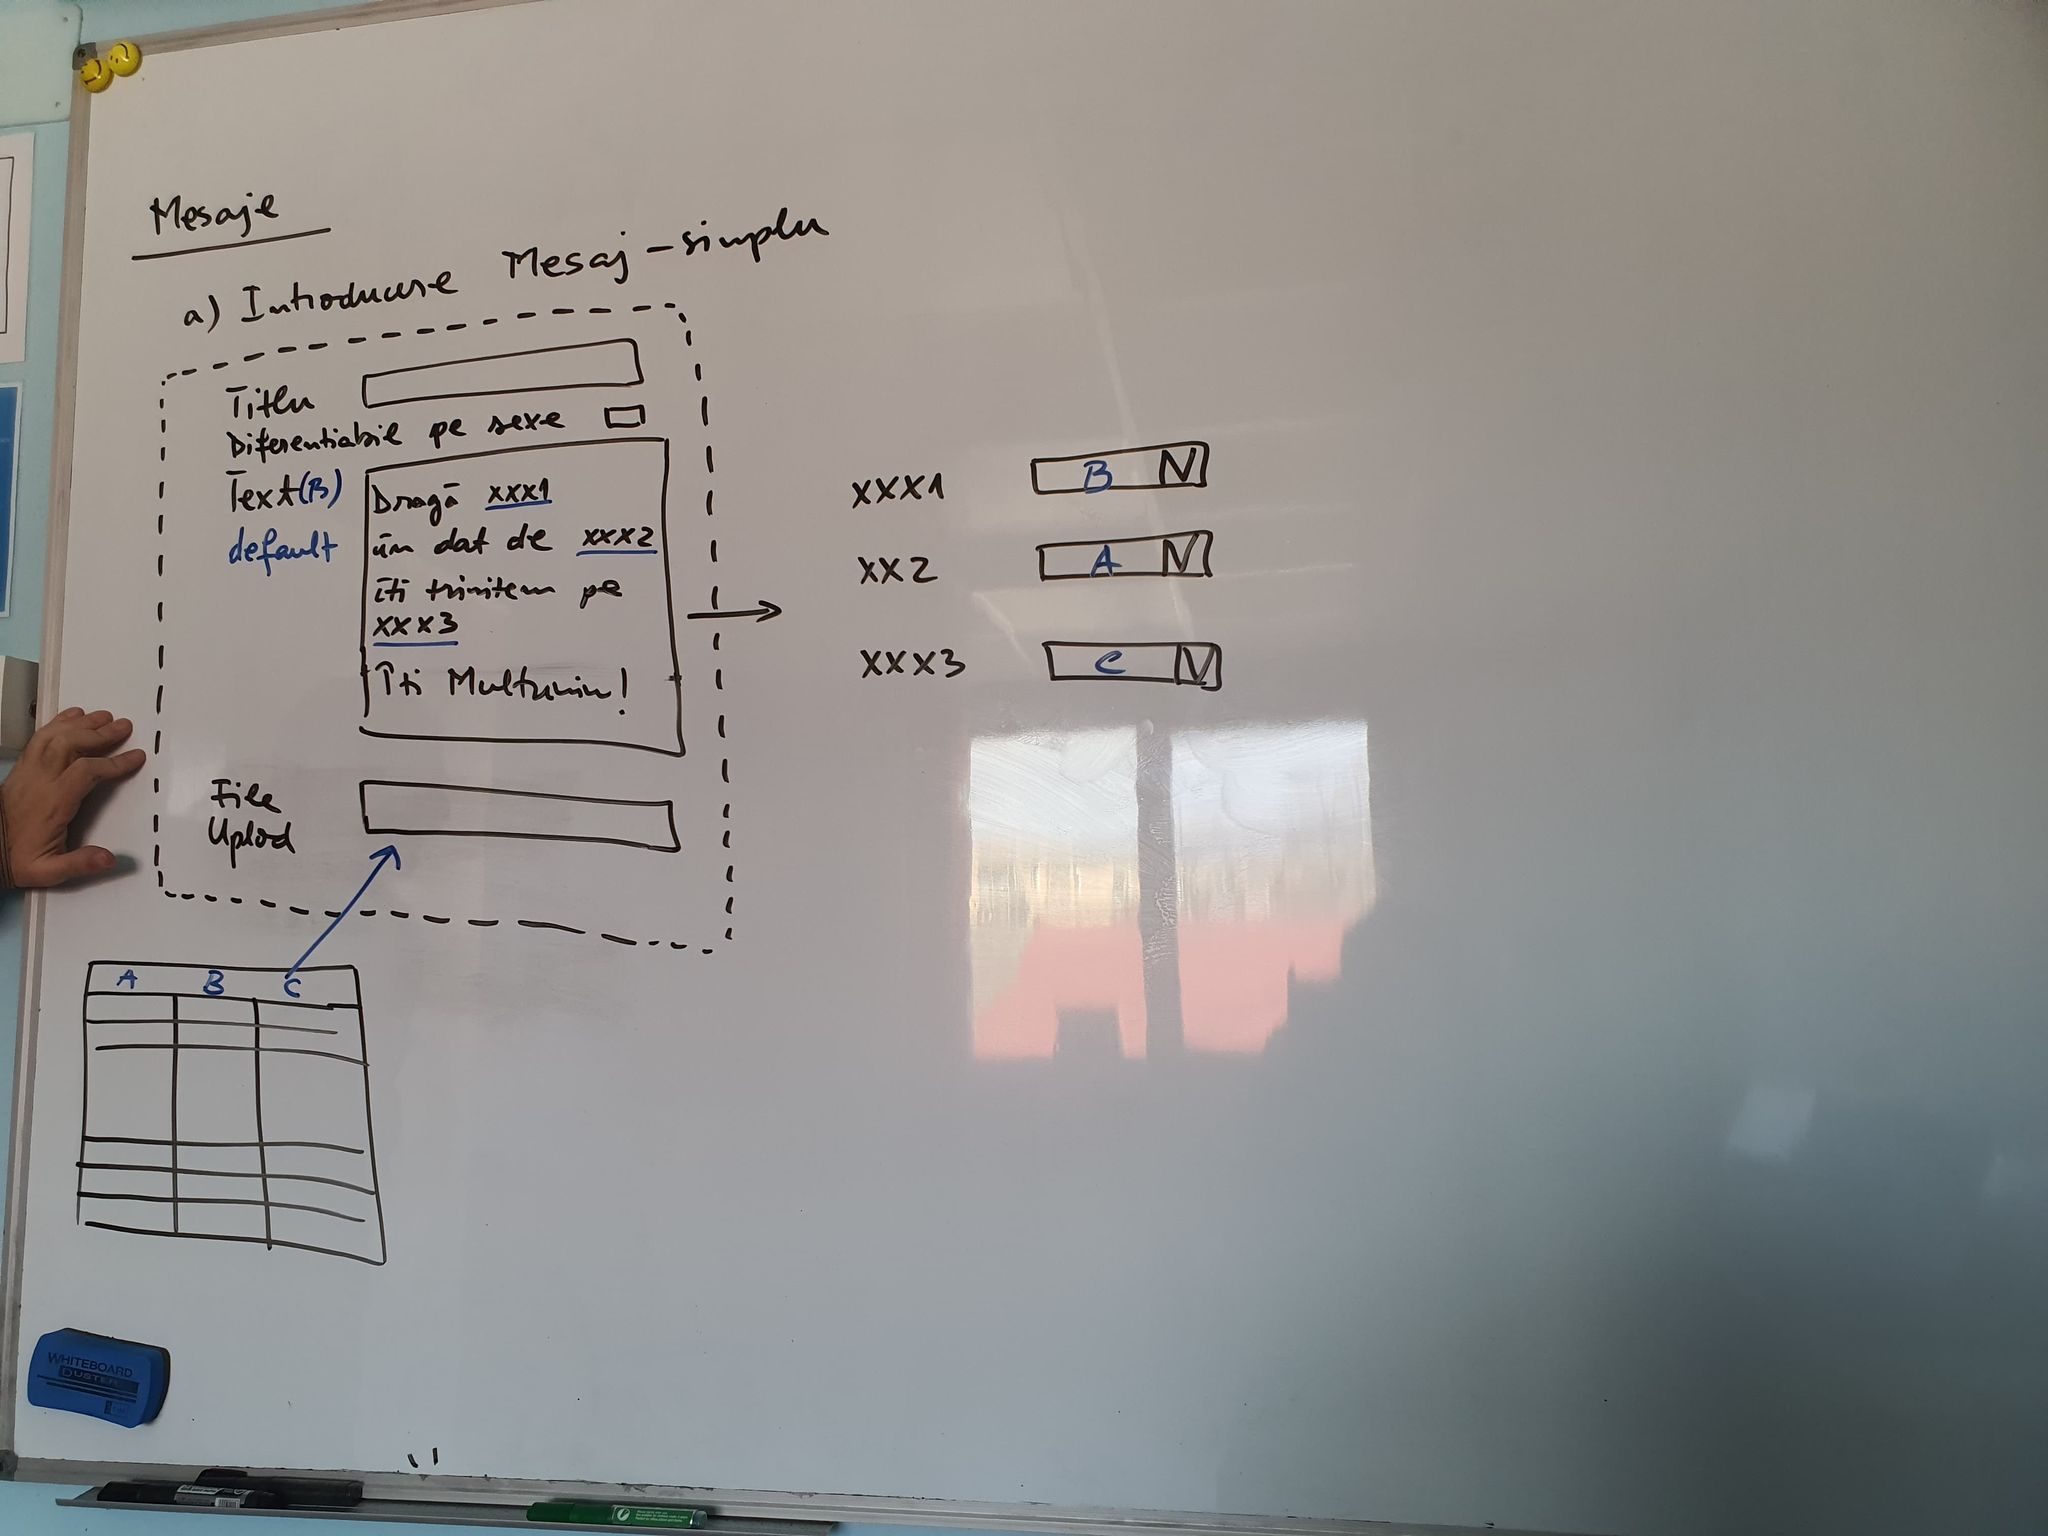 Mesaje
a) Introducere Mesaj - simplu
Titlu
Diferentiabile pe sexe
Text(B)
default
Dragă xxx1
în dat de xxx2
îti trimitem pe
xxx3
Îti Multumim!
File
Uplod
xxx1 B
xx2 A
xxx3 C
A B C
WHITEBOARD
DUSTER